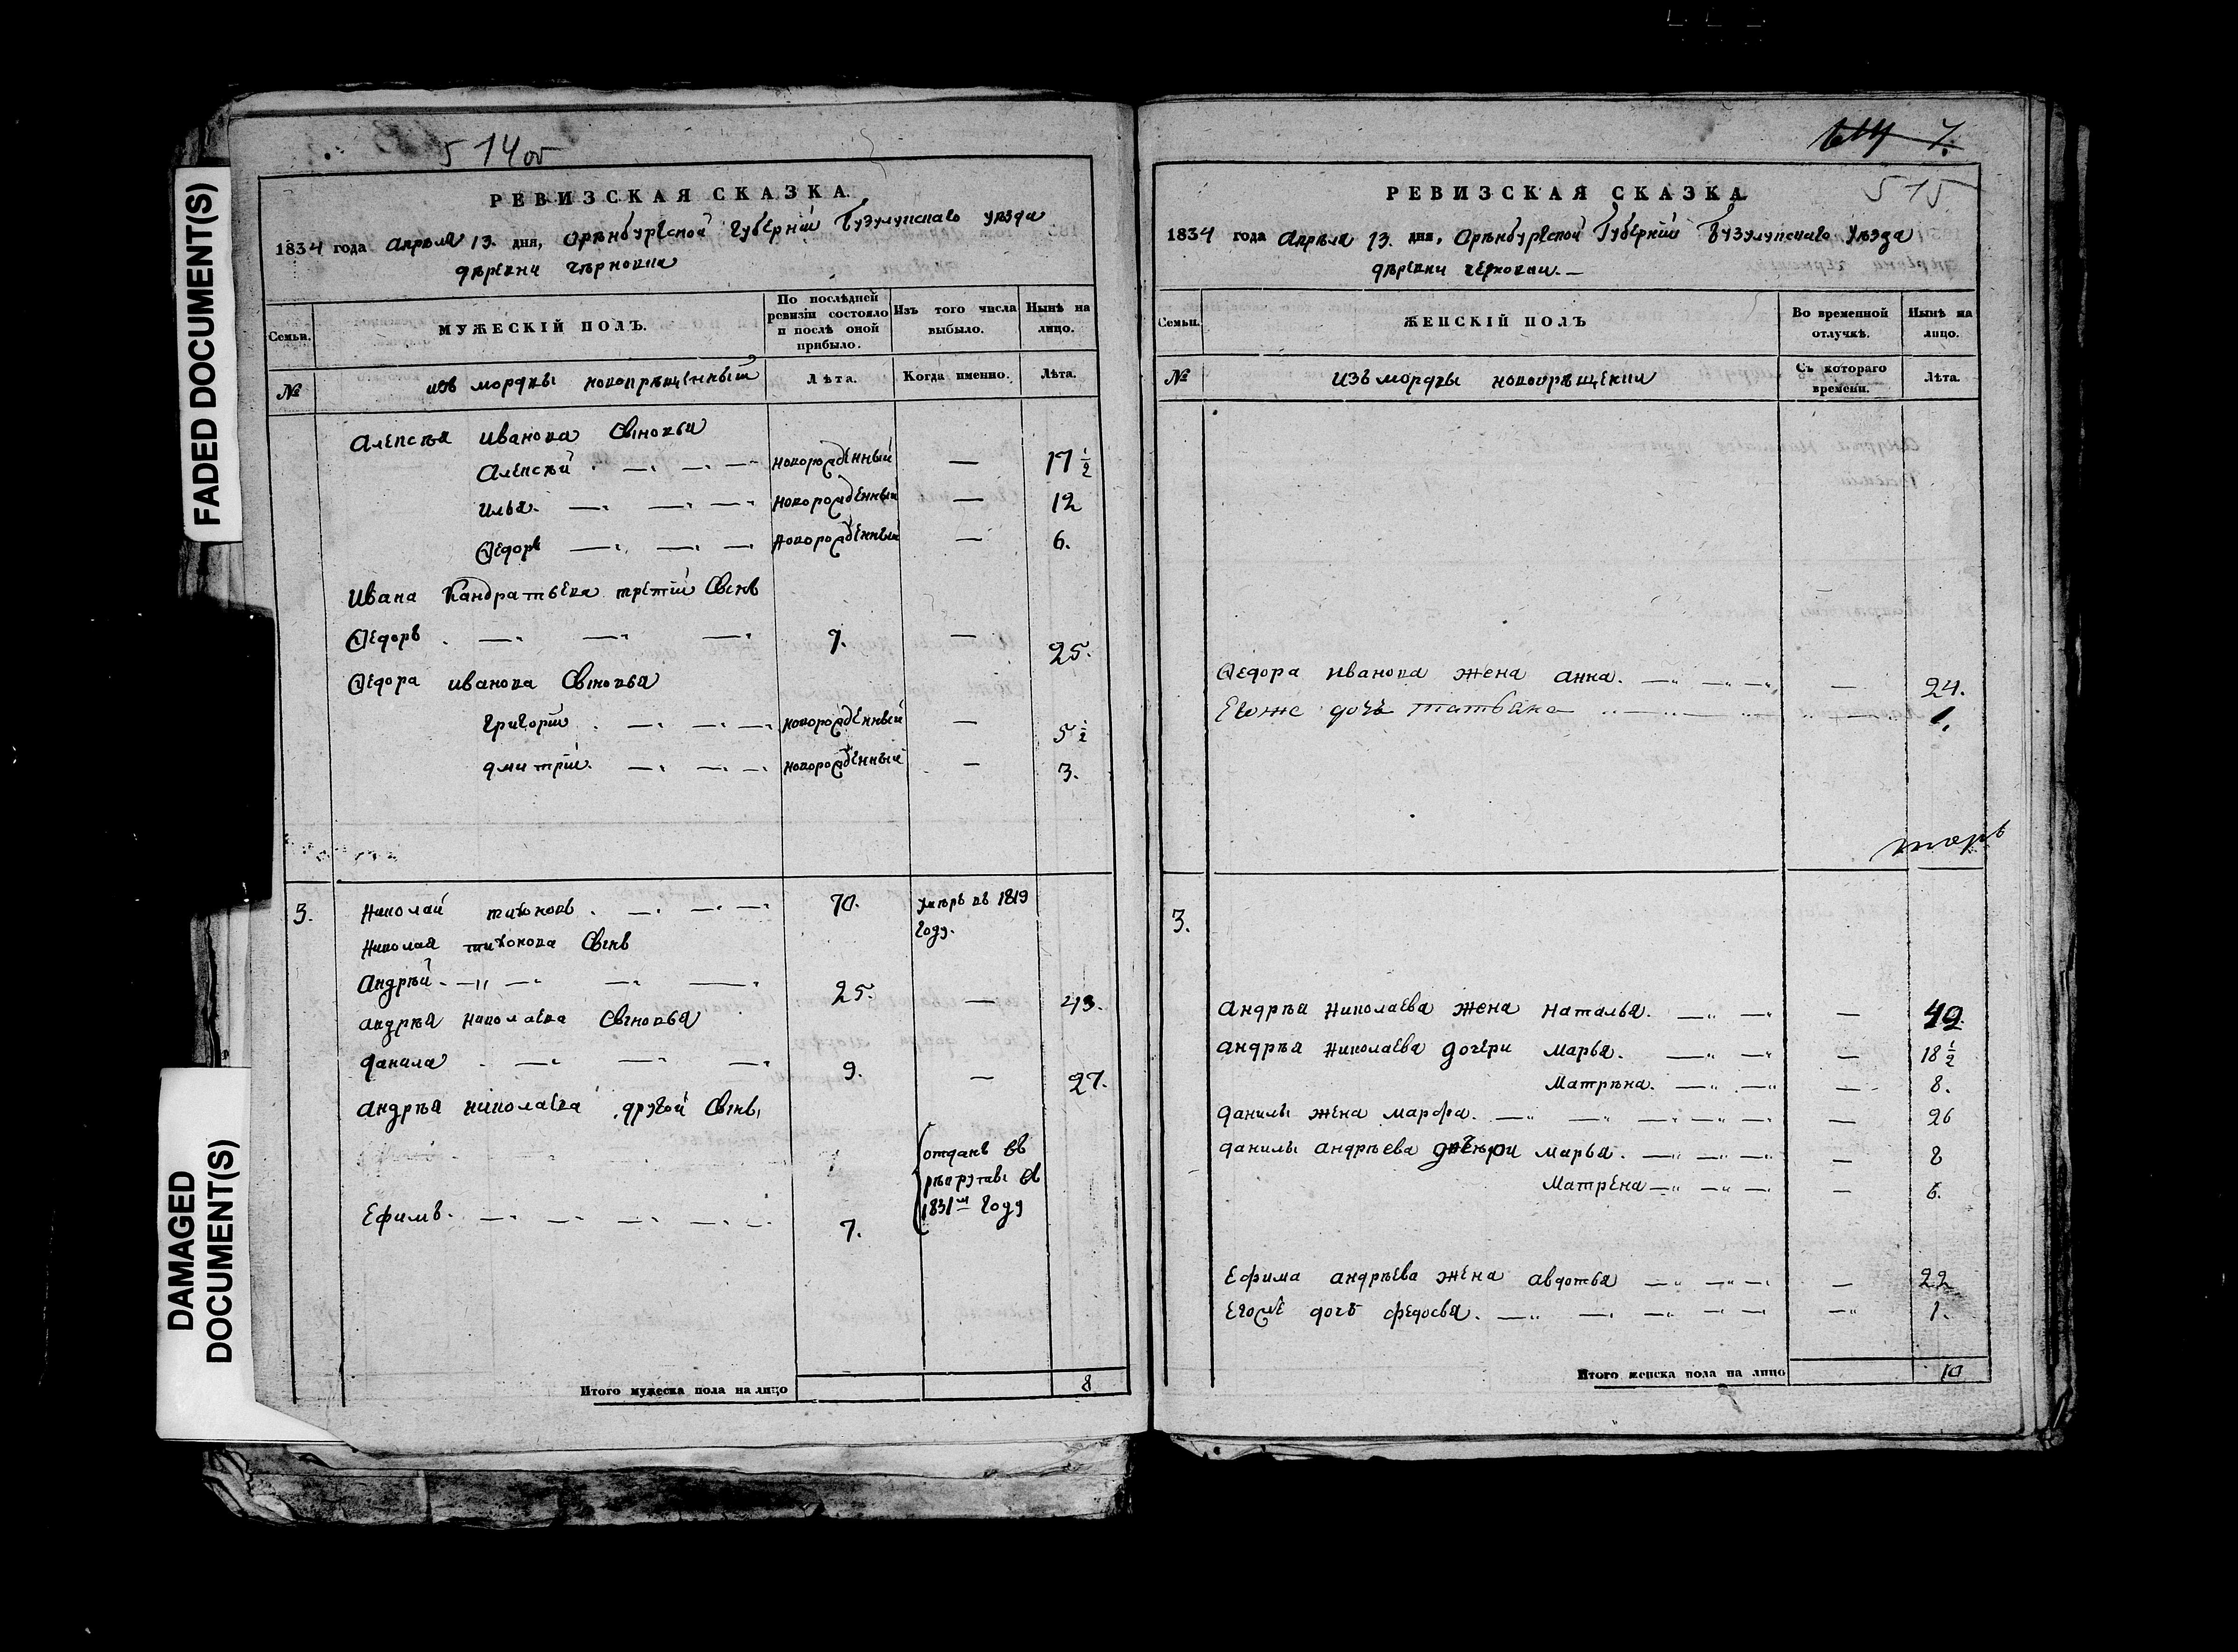 FADED DOCUMENT(S)
DAMAGED
DOCUMENT(S)
514об
РЕВИЗСКАЯ СКАЗКА
1834 года апреля 13. дня, Оренбургской губернии Бузулукскаго уезда
деревни черновки
Семьи.
МУЖЕСКІЙ ПОЛЪ.
По послѣдней
ревизіи состояло
и послѣ оной
прибыло.
Изъ того числа
выбыло.
Нынѣ на
лицо.
№
изъ мордвы новокрѣщенный
Лѣта.
Когда именно.
Лѣта.
Алексѣя Иванова Сыновья
Алексѣй новорожденный — 17½
Илья новорожденный — 12
Ѳедоръ новорожденный — 6.
Ивана Кандратьева третiй Сынъ
Ѳедоръ 7. — 25.
Ѳедора иванова Сыновья
григорiй новорожденный — 5½
дмитрiй новорожденный — 3.
3. Николай тихоновъ 70. умѣръ въ 1819
году.
Николая тихонова Сынъ
Андрѣй 25. — 43.
андрѣя николаева Сыновья
данила 9. — 27.
андрѣя николаева другой Сынъ
отданъ въ
рѣкруты въ
1831м году
Ефимъ 7.
Итого мужеска пола на лицо 8
7.
515
РЕВИЗСКАЯ СКАЗКА
1834 года Апрѣля 13. дня, Орѣнбургской Губернiи Бузулукскаго Уѣзда
дѣревни черновки.
Семьи.
ЖЕНСКІЙ ПОЛЪ
Во временной
отлучкѣ.
Нынѣ на
лицо.
№
Изъ мордвы новокрѣщении
Съ котораго
времени.
Лѣта.
Ѳедора иванова жена анна. — 24.
Егоже дочь татьяна — 1.
3.
Андрѣя николаева жена Наталья. — 49.
андрѣя николаева дочери Марья. — 18½
Матрѣна. — 8.
данилы жена марфа. — 26
данилы андрѣева дочери марья. — 8
Матрена — 6.
Ефима андрѣева жена авдотья — 22
егоже дочь федосья. — 1.
Итого женска пола на лицо 10